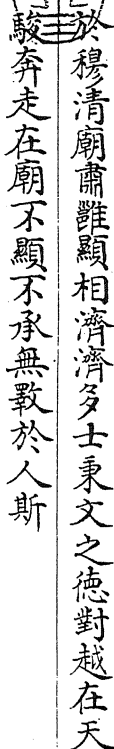 於穆清廟肅雝顯相濟濟多士秉文之德對越在天
駿奔走在廟不顯不承無斁於人斯